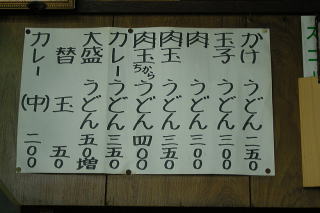 かけうどん 二五〇
玉子うどん 三〇〇
肉うどん 三〇〇
肉玉うどん 三五〇
肉玉ちからうどん 四〇〇
カレーうどん 三五〇
大盛うどん 五〇増
替玉 五〇
カレー(中) 二〇〇